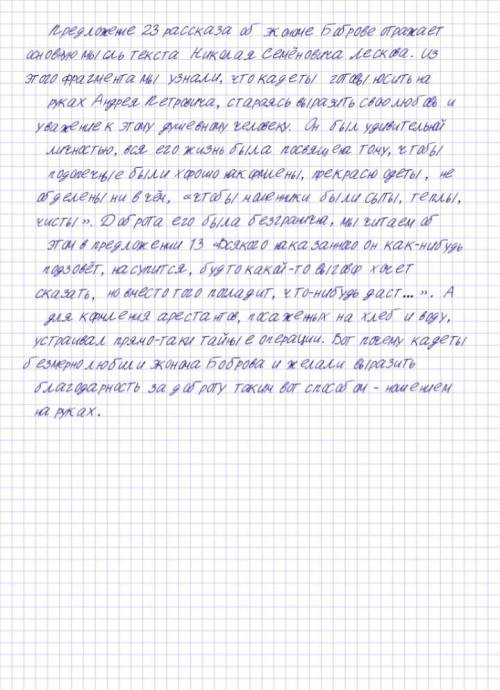 Предложение 23 рассказа об экономе Боброве отражает
основную мысль текста Николая Семёновича Лескова. Из
этого фрагмента мы узнали, что кадеты готовы носить на
руках Андрея Петровича, стараясь выразить свою любовь и
уважение к этому душевному человеку. Он был удивительной
личностью, вся его жизнь была посвящена тому, чтобы
подопечные были хорошо накормлены, прекрасно одеты, не
обделены ни в чём, «чтобы мошенники были сыты, теплы,
чисты». Доброта его была безгранична, мы читаем об
этом в предложении 13 «Всякого наказанного он как-нибудь
подзовёт, насупится, будто какой-то выговор хочет
сказать, но вместо того погладит, что-нибудь даст...». А
для кормления арестантов, посаженых на хлеб и воду,
устраивал прямо-таки тайные операции. Вот почему кадеты
безмерно любили эконома Боброва и желали выразить
благодарность за доброту таким вот способом - ношением
на руках.